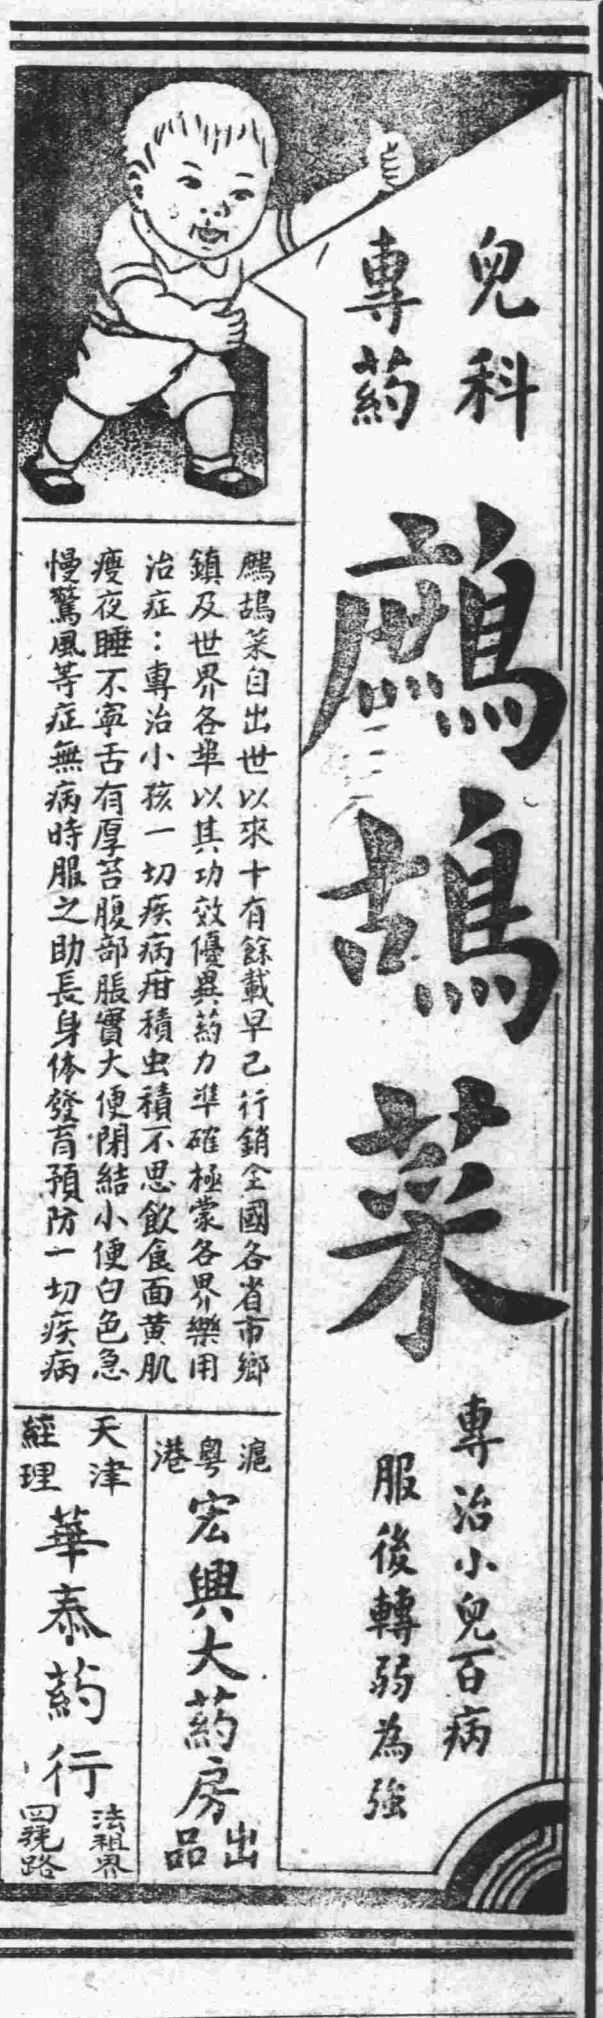 兒科
專葯
鷓鴣菜
專治小兒百病
服後轉弱為強
鷓鴣菜自出世以來十有餘載早已行銷全國各省市鄉
鎮及世界各埠以其功效優異葯力準確極蒙各界樂用
治症：專治小孩一切疾病疳積虫積不思飲食面黃肌
瘦夜睡不寧舌有厚苔腹部脹實大便閉結小便白色急
慢驚風等症無病時服之助長身体發育預防一切疾病
滬
粵
港
宏興大葯房
出品
天津
經理
華泰葯行
法租界
四號路